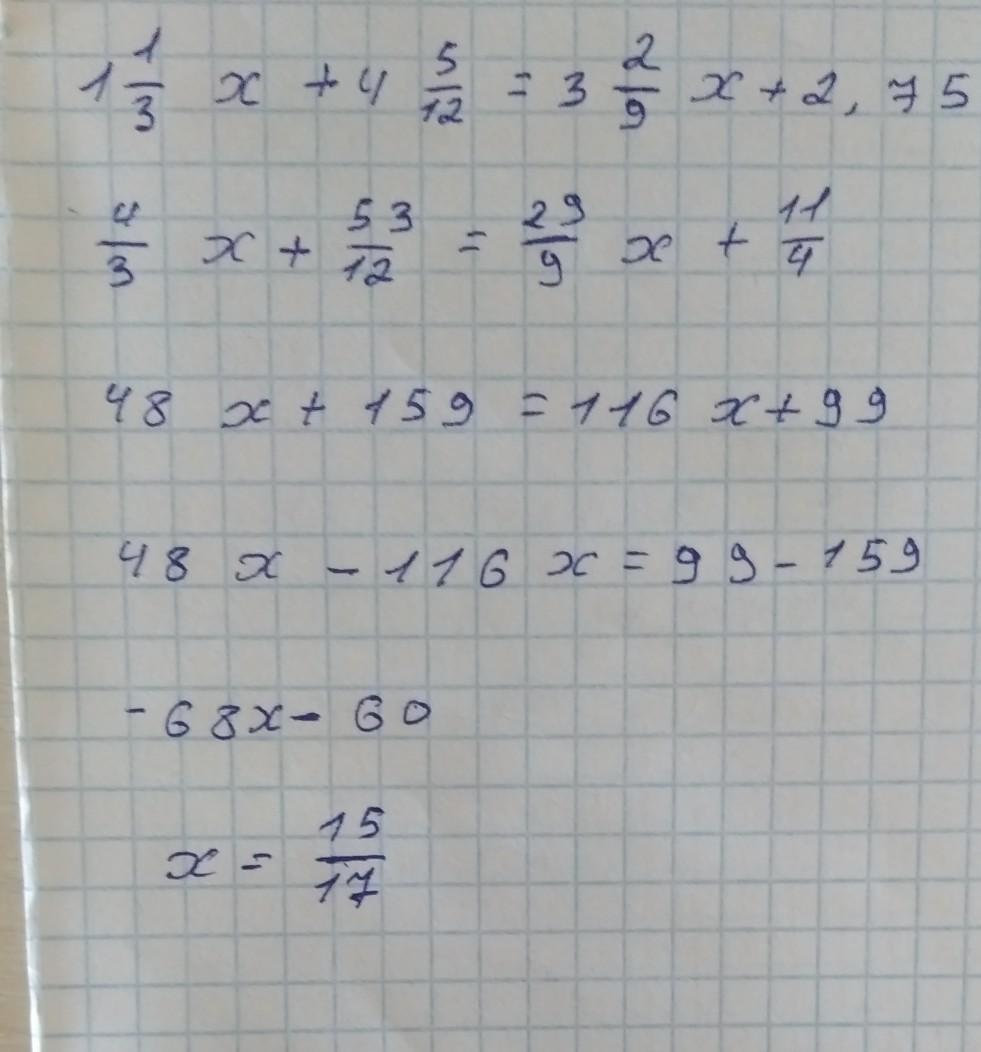 1 1/3 x + 4 5/12 = 3 2/9 x + 2,75
4/3 x + 53/12 = 29/9 x + 11/4
48 x + 159 = 116 x + 99
48 x - 116 x = 99 - 159
-68x - 60
x = 15/17